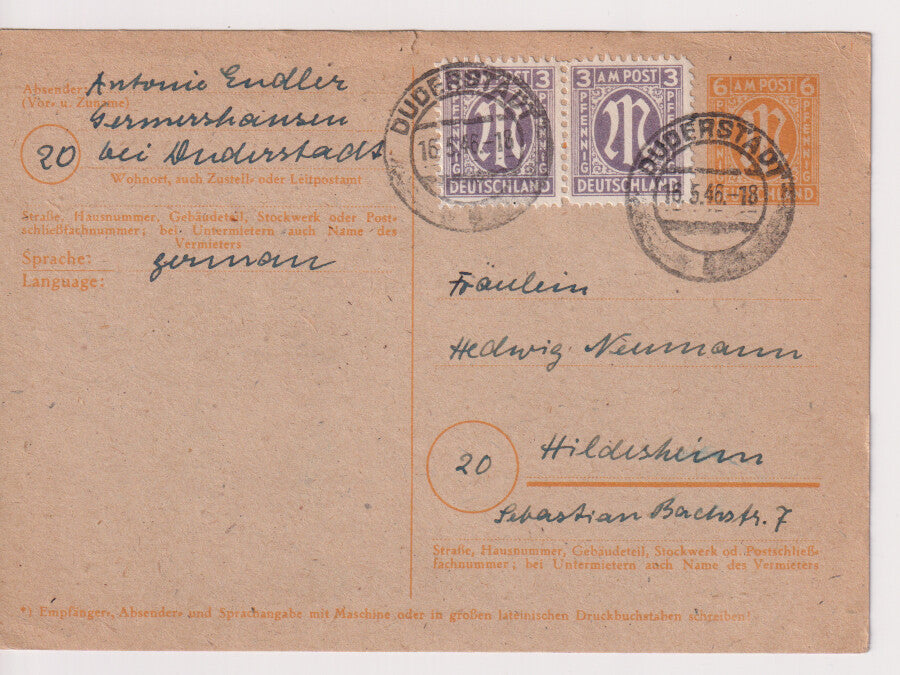 Absender
(Vor- u. Zuname)
Antonie Endler
Germershausen
20
bei Duderstadt
Wohnort, auch Zustell- oder Leitpostamt
Straße, Hausnummer, Gebäudeteil, Stockwerk oder Post-
schließfachnummer; bei Untermietern auch Name des
Vermieters
Sprache:
german
Language:
3 AM POST 3
PFENNIG
DEUTSCHLAND
3 AM POST 3
PFENNIG PFENNIG
DEUTSCHLAND
6 AM POST 6
DUDERSTADT
16.5.46.-18
DUDERSTADT
16.5.46.-18
b
Fräulein
Hedwig Neumann
20
Hildesheim
Sebastian Bachstr. 7
Straße, Hausnummer, Gebäudeteil, Stockwerk od. Postschließ-
fachnummer; bei Untermietern auch Name des Vermieters
*) Empfänger-, Absender- und Sprachangabe mit Maschine oder in großen lateinischen Druckbuchstaben schreiben!